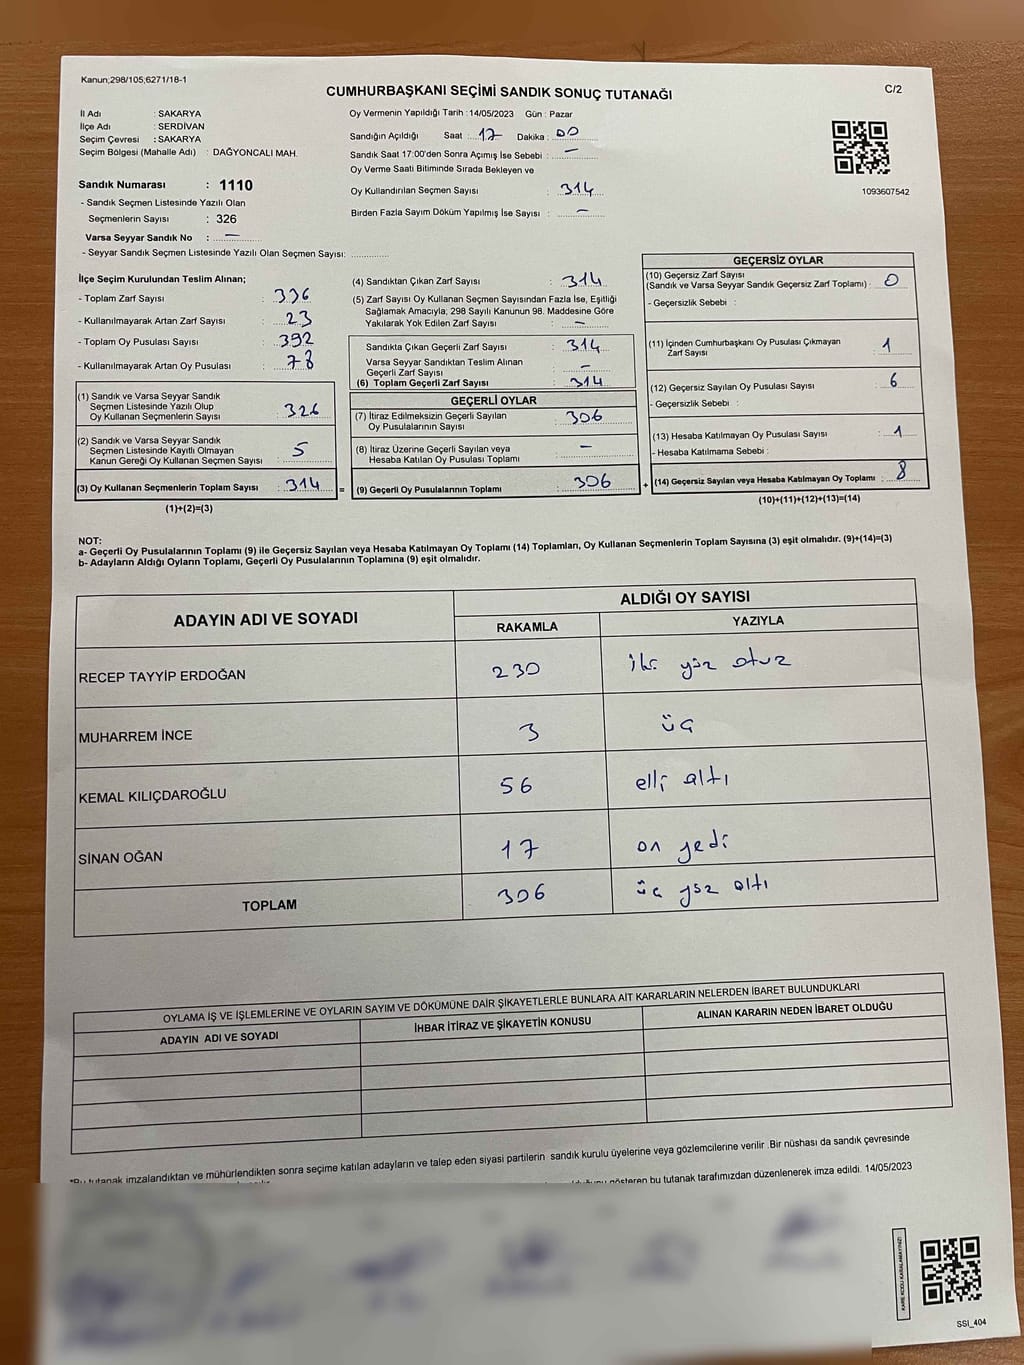 Kanun;298/105;6271/18-1
CUMHURBAŞKANI SEÇİMİ SANDIK SONUÇ TUTANAĞI
C/2
İl Adı : SAKARYA
İlçe Adı : SERDİVAN
Seçim Çevresi : SAKARYA
Seçim Bölgesi (Mahalle Adı) : DAĞYONCALI MAH.
Sandık Numarası : 1110
- Sandık Seçmen Listesinde Yazılı Olan
Seçmenlerin Sayısı : 326
Varsa Seyyar Sandık No : –
- Seyyar Sandık Seçmen Listesinde Yazılı Olan Seçmen Sayısı: ..............
Oy Vermenin Yapıldığı Tarih : 14/05/2023 Gün : Pazar
Sandığın Açıldığı Saat : 17 Dakika : 00
Sandık Saat 17:00'den Sonra Açımış İse Sebebi : –
Oy Verme Saati Bitiminde Sırada Bekleyen ve
Oy Kullandırılan Seçmen Sayısı : 314
Birden Fazla Sayım Döküm Yapılmış İse Sayısı : –
1093607542
İlçe Seçim Kurulundan Teslim Alınan;
- Toplam Zarf Sayısı : 336
- Kullanılmayarak Artan Zarf Sayısı : 23
- Toplam Oy Pusulası Sayısı : 392
- Kullanılmayarak Artan Oy Pusulası : 78
(1) Sandık ve Varsa Seyyar Sandık
Seçmen Listesinde Yazılı Olup
Oy Kullanan Seçmenlerin Sayısı : 326
(2) Sandık ve Varsa Seyyar Sandık
Seçmen Listesinde Kayıtlı Olmayan
Kanun Gereği Oy Kullanan Seçmen Sayısı : 5
(3) Oy Kullanan Seçmenlerin Toplam Sayısı : 314
(1)+(2)=(3)
=
(4) Sandıktan Çıkan Zarf Sayısı : 314
(5) Zarf Sayısı Oy Kullanan Seçmen Sayısından Fazla İse, Eşitliği
Sağlamak Amacıyla; 298 Sayılı Kanunun 98. Maddesine Göre
Yakılarak Yok Edilen Zarf Sayısı : –
Sandıkta Çıkan Geçerli Zarf Sayısı : 314
Varsa Seyyar Sandıktan Teslim Alınan
Geçerli Zarf Sayısı : –
(6) Toplam Geçerli Zarf Sayısı : 314
GEÇERLİ OYLAR
(7) İtiraz Edilmeksizin Geçerli Sayılan
Oy Pusulalarının Sayısı : 306
(8) İtiraz Üzerine Geçerli Sayılan veya
Hesaba Katılan Oy Pusulası Toplamı : –
(9) Geçerli Oy Pusulalarının Toplamı : 306
+
GEÇERSİZ OYLAR
(10) Geçersiz Zarf Sayısı
(Sandık ve Varsa Seyyar Sandık Geçersiz Zarf Toplamı) : 0
- Geçersizlik Sebebi :
(11) İçinden Cumhurbaşkanı Oy Pusulası Çıkmayan
Zarf Sayısı : 1
(12) Geçersiz Sayılan Oy Pusulası Sayısı : 6
- Geçersizlik Sebebi :
(13) Hesaba Katılmayan Oy Pusulası Sayısı : 1
- Hesaba Katılmama Sebebi :
(14) Geçersiz Sayılan veya Hesaba Katılmayan Oy Toplamı : 8
(10)+(11)+(12)+(13)=(14)
NOT:
a- Geçerli Oy Pusulalarının Toplamı (9) ile Geçersiz Sayılan veya Hesaba Katılmayan Oy Toplamı (14) Toplamları, Oy Kullanan Seçmenlerin Toplam Sayısına (3) eşit olmalıdır. (9)+(14)=(3)
b- Adayların Aldığı Oyların Toplamı, Geçerli Oy Pusulalarının Toplamına (9) eşit olmalıdır.
ADAYIN ADI VE SOYADI
ALDIĞI OY SAYISI
RAKAMLA YAZIYLA
RECEP TAYYİP ERDOĞAN 230 iki yüz otuz
MUHARREM İNCE 3 üç
KEMAL KILIÇDAROĞLU 56 elli altı
SİNAN OĞAN 17 on yedi
TOPLAM 306 üç yüz altı
OYLAMA İŞ VE İŞLEMLERİNE VE OYLARIN SAYIM VE DÖKÜMÜNE DAİR ŞİKAYETLERLE BUNLARA AİT KARARLARIN NELERDEN İBARET BULUNDUKLARI
ADAYIN ADI VE SOYADI İHBAR İTİRAZ VE ŞİKAYETİN KONUSU ALINAN KARARIN NEDEN İBARET OLDUĞU
*Bu tutanak imzalandıktan ve mühürlendikten sonra seçime katılan adayların ve talep eden siyasi partilerin sandık kurulu üyelerine veya gözlemcilerine verilir .Bir nüshası da sandık çevresinde
gösteren bu tutanak tarafımızdan düzenlenerek imza edildi. 14/05/2023
KARE KODU KARALAMAYINIZ!
SSI_404